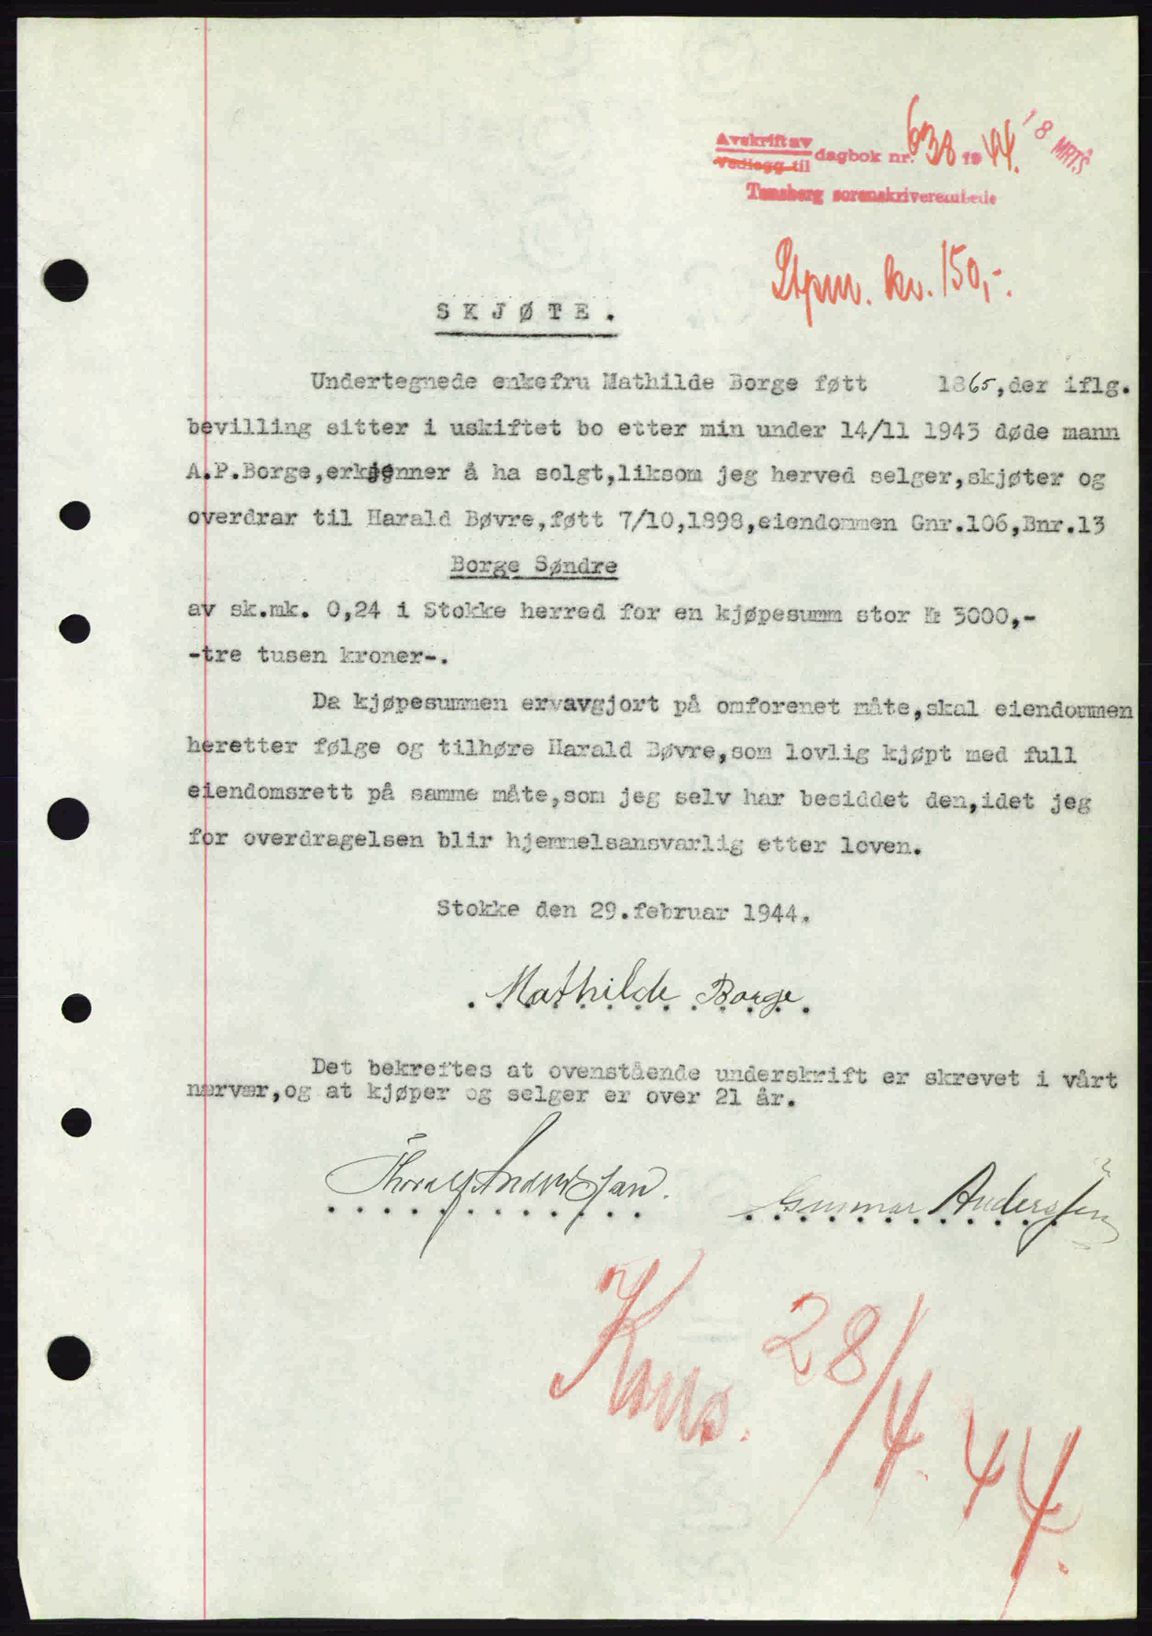 Avskrift av
Vedlegg til dagbok nr. 638 19 44.
18 MRTS
Tønsberg sorenskriverembede
Stpm. kr. 150,-.
SKJØTE.
Undertegnede enkefru Mathilde Borge født 1865,der iflg.
bevilling sitter i uskiftet bo etter min under 14/11 1943 døde mann
A.P.Borge,erkjenner å ha solgt,liksom jeg herved selger,skjøter og
overdrar til Harald Bøvre,født 7/10,1898,eiendommen Gnr.106,Bnr.13
Borge Søndre
av sk.mk. 0,24 i Stokke herred for en kjøpesumm stor Kr 3000,-
-tre tusen kroner-.
Da kjøpesummen er avgjort på omforenet måte,skal eiendommen
heretter følge og tilhøre Harald Bøvre,som lovlig kjøpt med full
eiendomsrett på samme måte,som jeg selv har besiddet den,idet jeg
for overdragelsen blir hjemmelsansvarlig etter loven.
Stokke den 29.februar 1944.
Mathilde Borge
Det bekreftes at ovenstående underskrift er skrevet i vårt
nærvær,og at kjøper og selger er over 21 år.
Thoralf Andersen. Gunnar Anderssen
Kons. 28/4. 44.